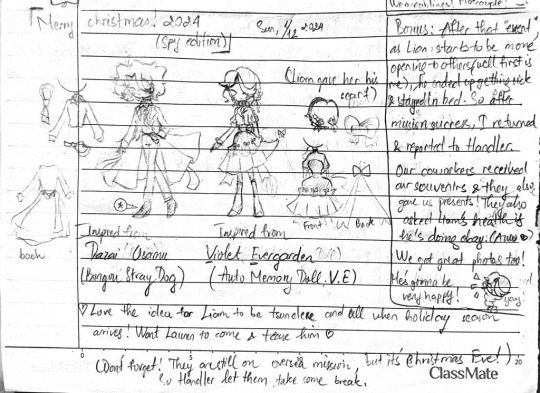 Merry christmas! 2024
(Spy edition)
Sun, 1/12 2024
(Liam gave her his scarf)
back
Front
Back
Inspired from
Dazai Osamu
(Bungou Stray Dog)
Inspired from
Violet Evergarden
(Auto Memory Doll. V.E)
♡ Love the idea for Liam to be tsundere and all when holiday season
arrives! Want Lauren to come & tease him
(Dont forget! They are still on oversea mission, but it's Christmas Eve!)
So Handler let them take some break.
Bonus: After that "event",
as Liam starts to be more
opening to others (well first is
me), he ended up getting sick
& stayed in bed. So after
mission, I returned
& reported to Handler
Our coworkers received
our souvenirs & they also
gave us presents! They also
asked Liam's health if
he's doing okay.
We got great photos too!
He's gonna be
very happy!
yay!
20
ClassMate